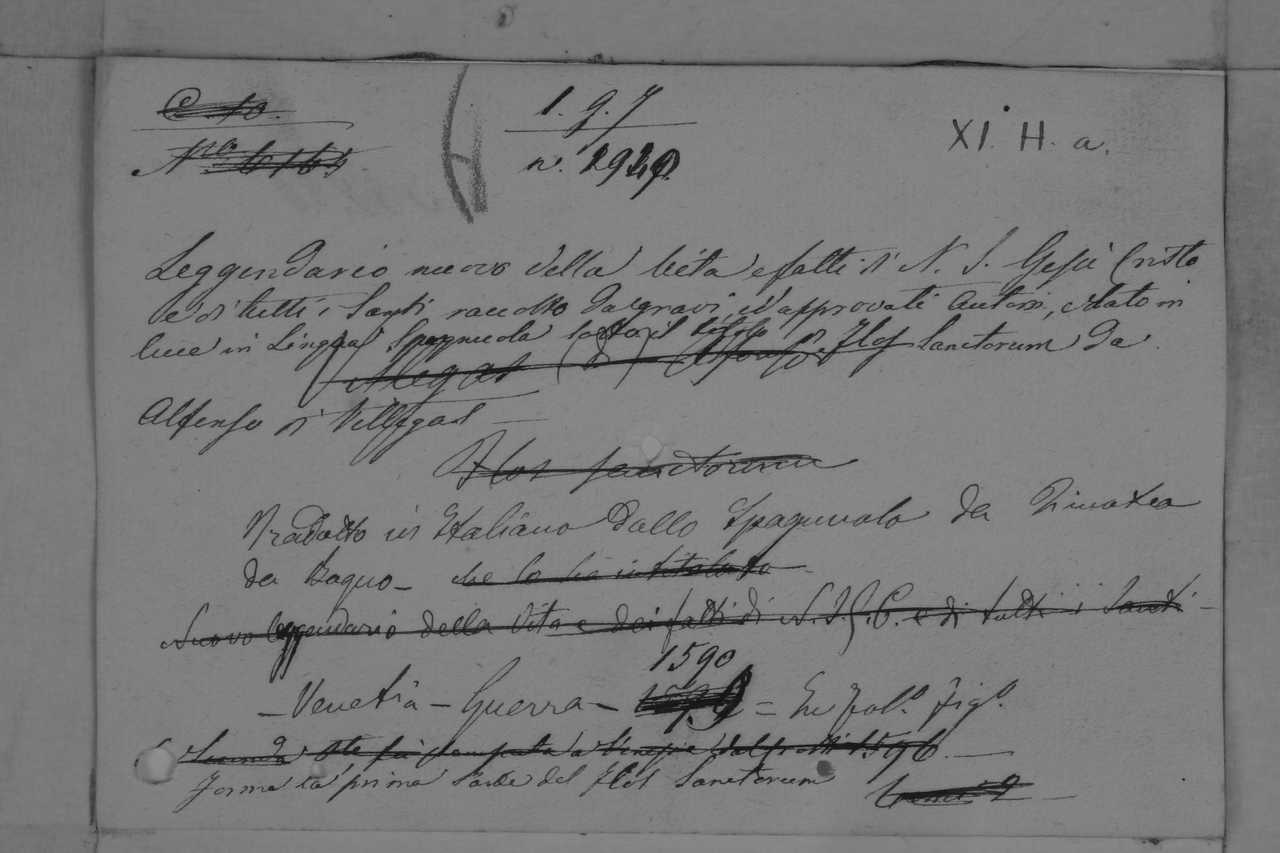 C. 10.
1. g. 7
XI. H. a.
N.ro 6163
n. 2929.
Leggendario nuovo della Vita e fatti di N. S. Gesù Cristo
e di tutti i Santi raccolto da gravi, ed approvati Autori, e dato in
luce in Lingua Spagnuola sotto il titolo di Flos Sanctorum da
Villegas (D) Alfonso
Alfonso di Villegas
Flos Sanctorum
Tradotto in Italiano dallo Spagnuolo da Timoteo
da Bagno – che lo ha intitolato
Nuovo leggendario della Vita e dei fatti di N. S. G. C. e di tutti i Santi –
1590
– Venetia – Guerra – = In fol.o fig.o
1596. –
Forma la prima Parte del Flos Sanctorum